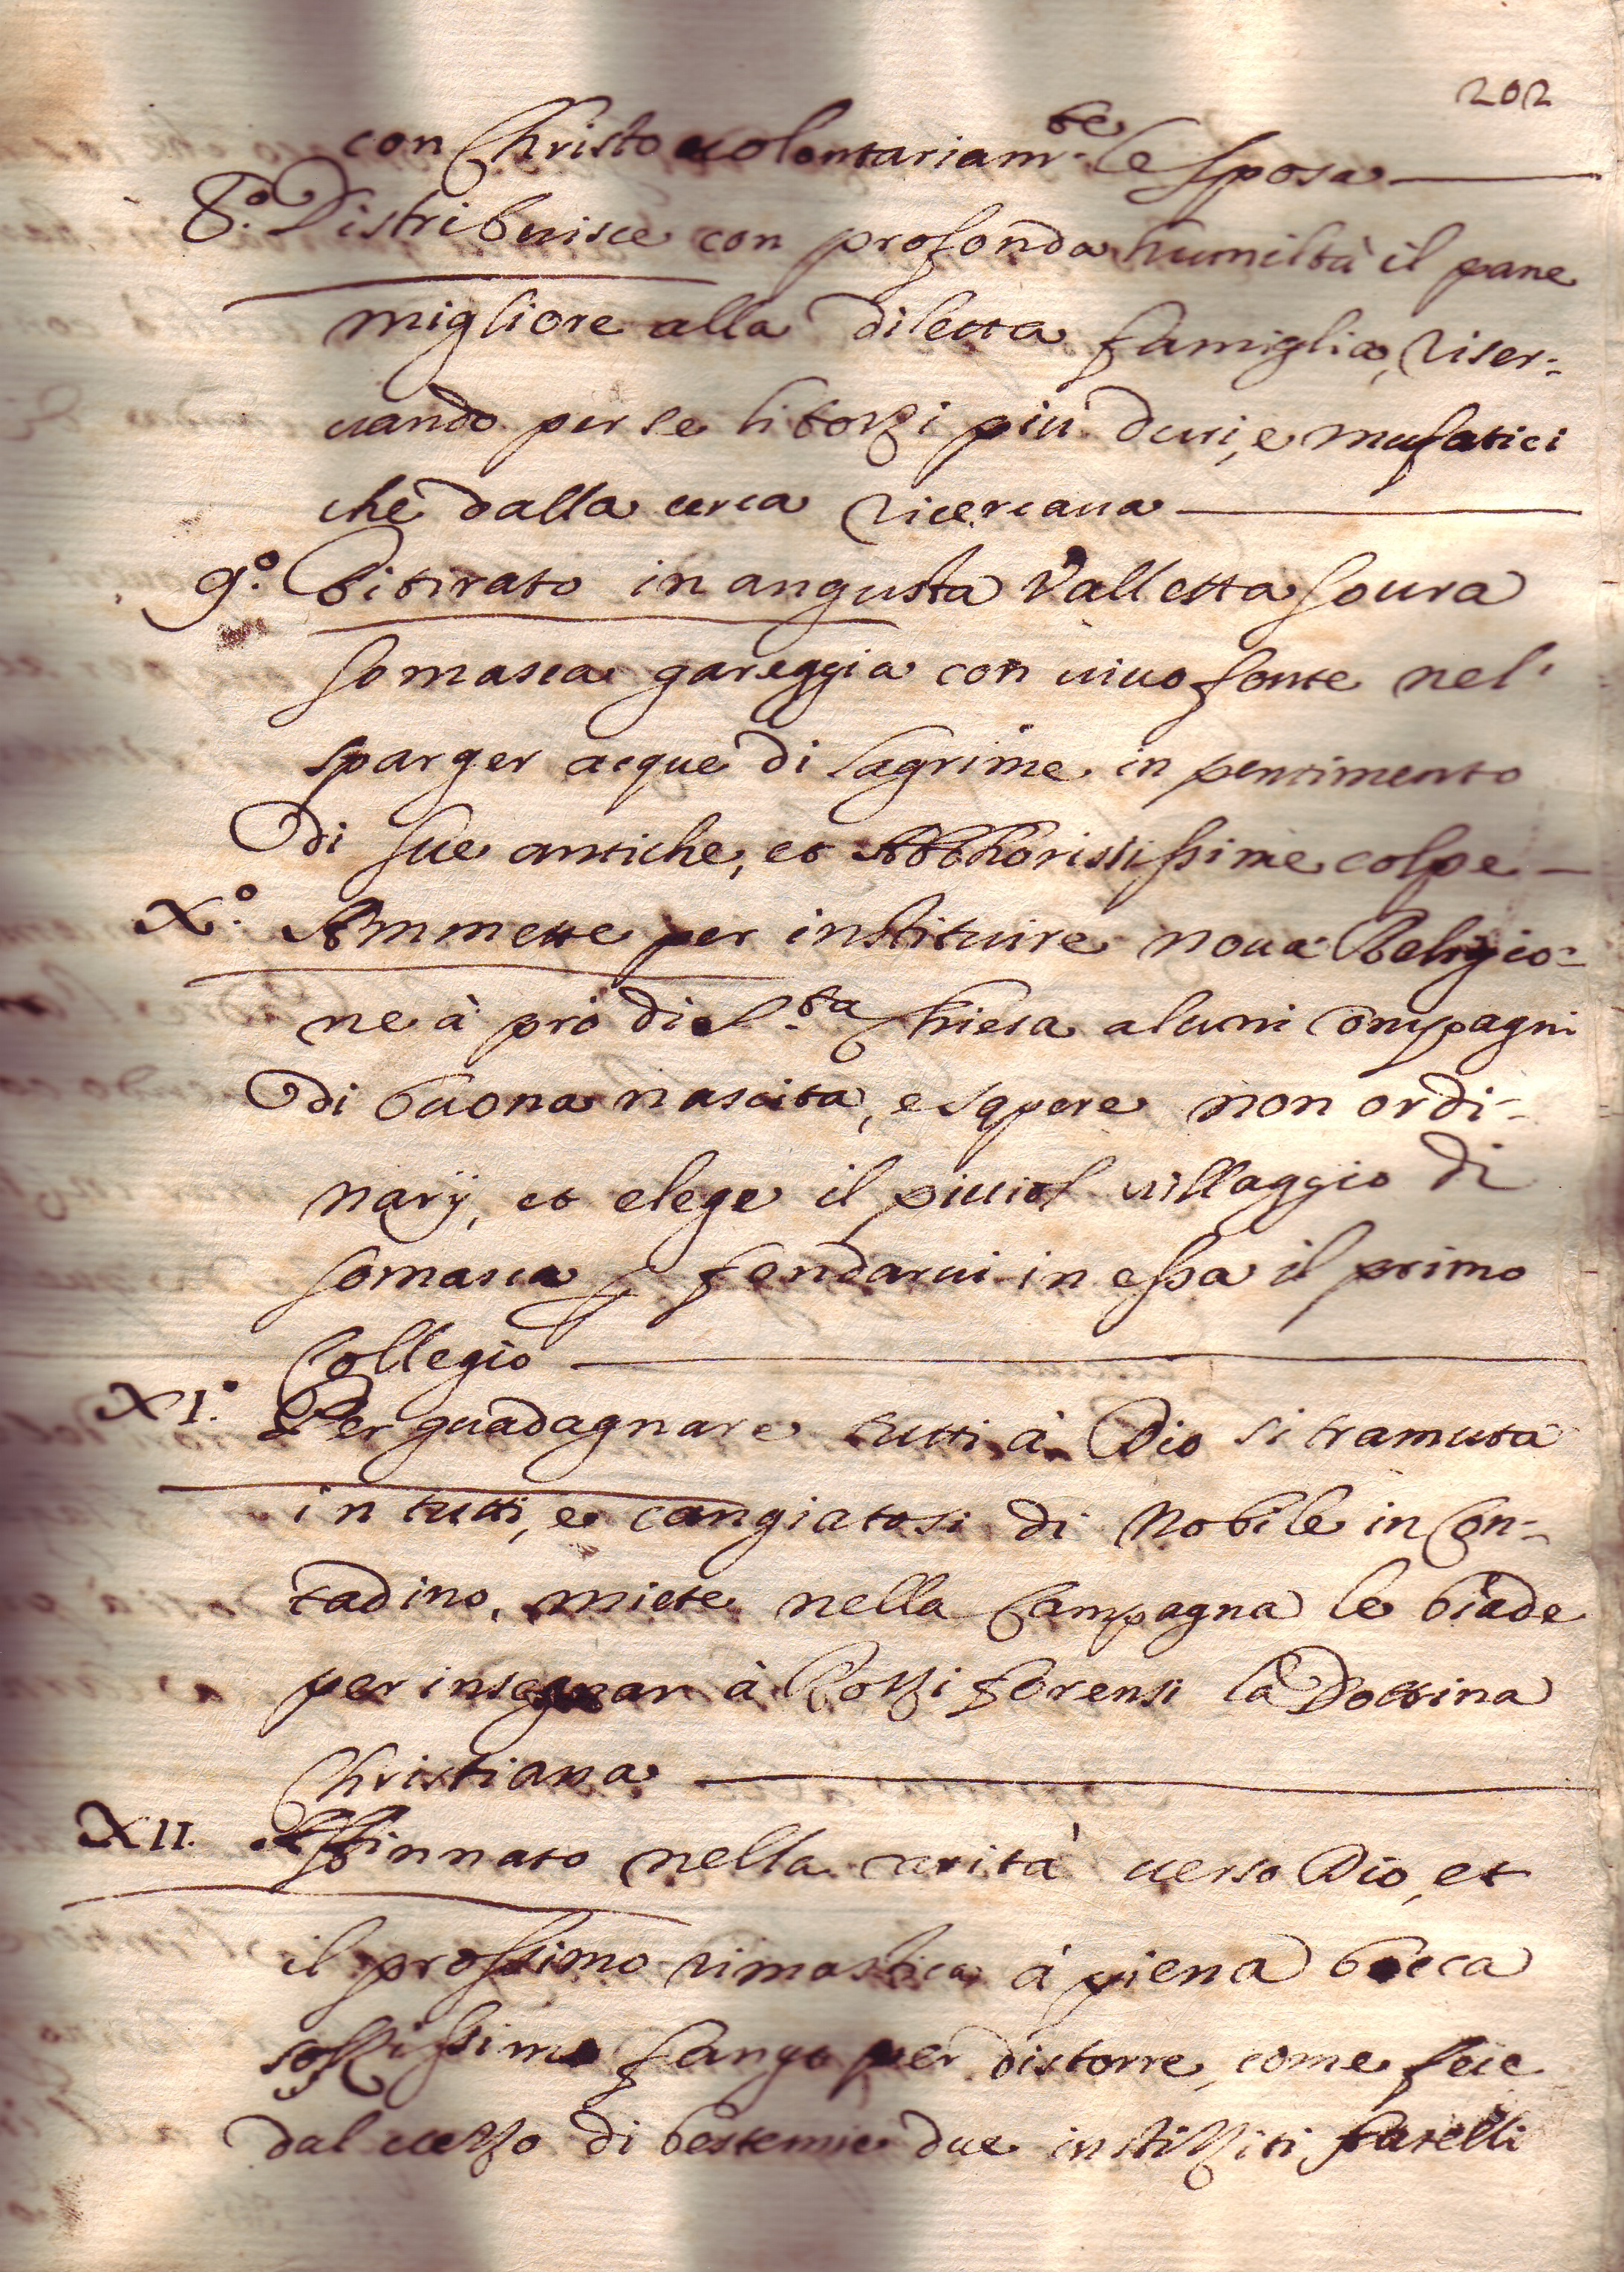 202
con Christo uolontariam.te le sposa
8.o Distribuisce con profonda humiltà il pane
migliore alla diletta famiglia, riser-
uando per se li tozzi più duri, e mufatici
che dalla cerca ricercaua
9.o Ritirato in angusta Valletta soura
somasca gareggia con uiuo fonte nel'
sparger acque di lagrime in pentimento
di sue antiche, et Abborissime colpe
X.o Ammette per instituire noua Religio-
ne à prò di S.ta Chiesa aluni compagni
di buona nascita, e sapere non ordi-
narij, et elege il picciol uillaggio di
somasca p fondarui in essa il primo
Collegio
XI.o Per guadagnare tutti à Dio si tramuta
in tutti, e cangiatosi di Nobile in Con-
tadino, miete nella Campagna le biade
per insegnar à Rozzi forensi la Dottrina
Christiana
XII. Affinnato nella carità uerso Dio, et
il prossimo rimastica à piena bocca
sozzissimo fango per distorre, come fece
dal uezzo di bestemie due instizziti fratelli